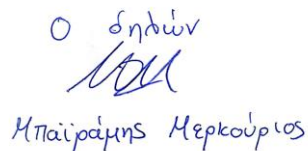 Ο δηλών
Μπαϊράμης Μερκούριος